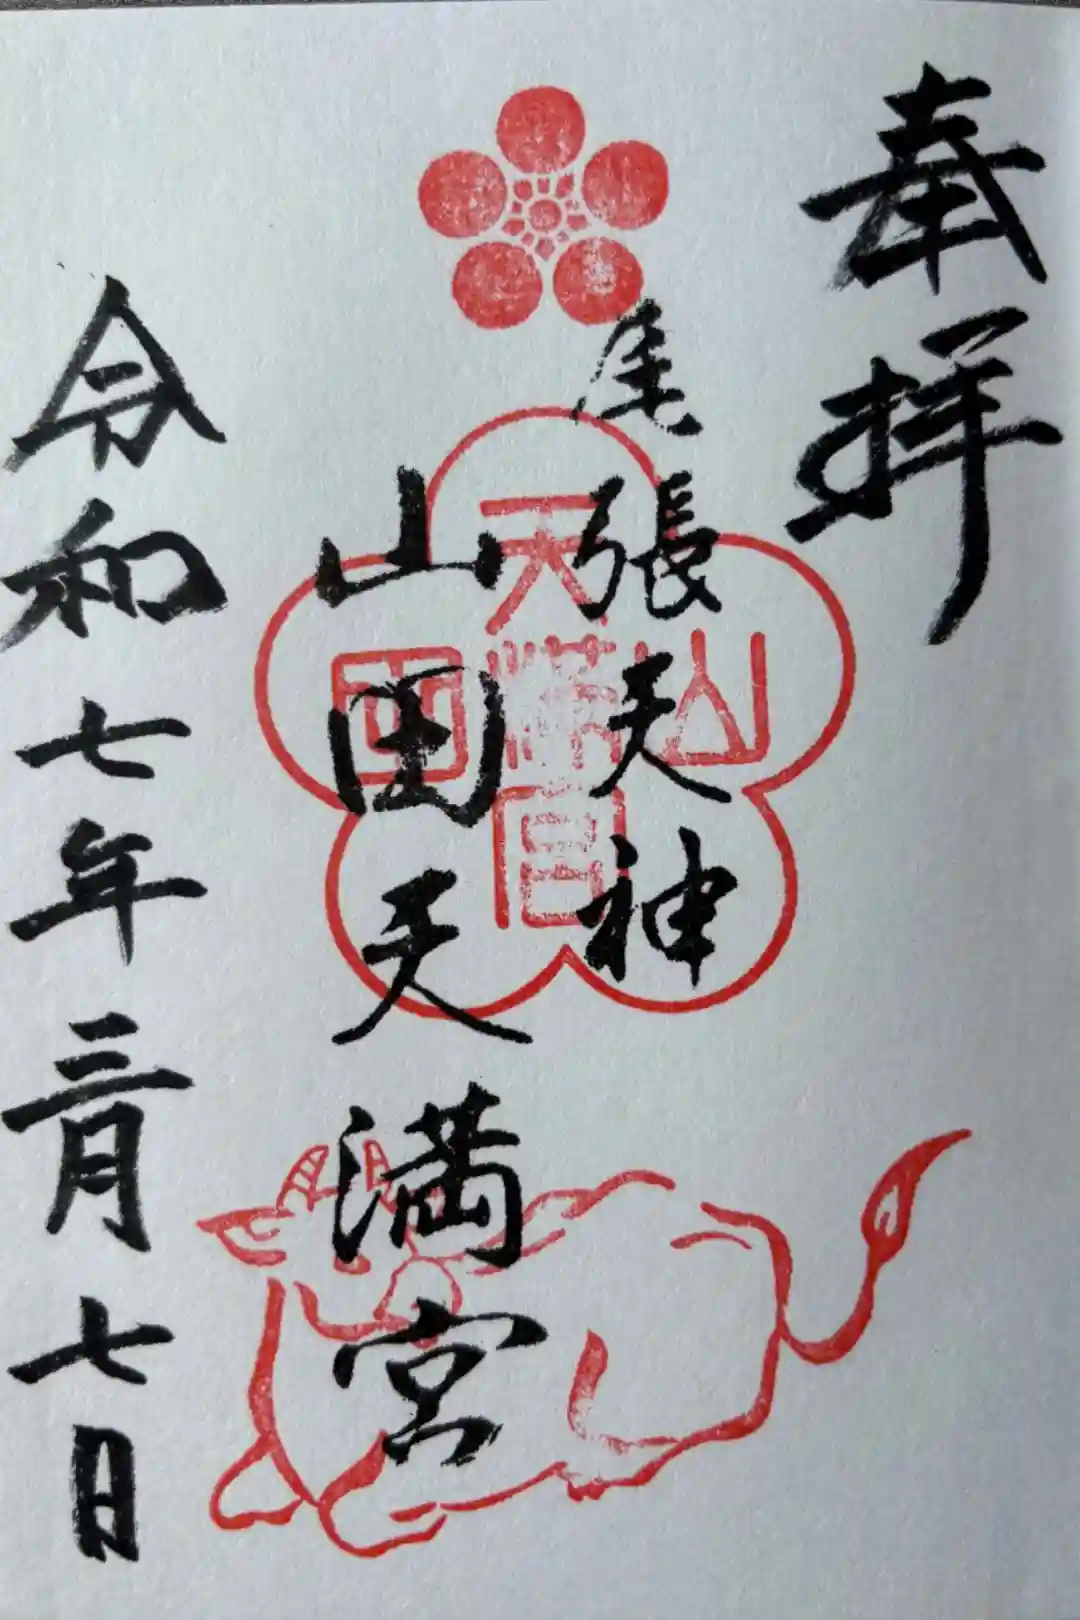 奉拝
尾張天神
山田天満宮
令和七年三月七日
天
山満田
宮